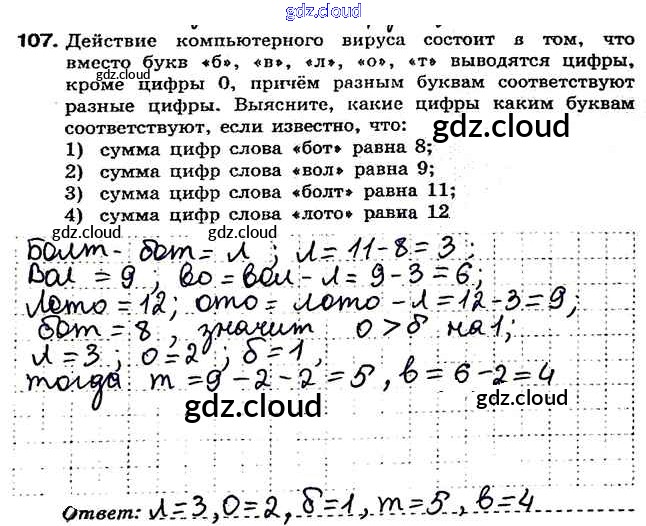 gdz.cloud
107. Действие компьютерного вируса состоит в том, что
вместо букв «б», «в», «л», «о», «т» выводятся цифры,
gdz.cloud gdz.cloud
кроме цифры 0, причём разным буквам соответствуют
разные цифры. Выясните, какие цифры каким буквам
соответствуют, если известно, что:
gdz.cloud
1) сумма цифр слова «бот» равна 8;
2) сумма цифр слова «вол» равна 9;
3) сумма цифр слова «болт» равна 11;
4) сумма цифр слова «лото» равна 12
gdz.cloud gdz.cloud
Болт - бот = л ; л = 11 - 8 = 3 ;
Вол = 9 ; во = вол - л = 9 - 3 = 6;
Лото = 12; ото = лото - л = 12 - 3 = 9;
бот = 8, значит о > б на 1;
л = 3 , о = 2 ; б = 1 ,
тогда т = 9 - 2 - 2 = 5 , в = 6 - 2 = 4
gdz.cloud gdz.cloud
gdz.cloud
gdz.cloud
Ответ: л = 3 , о = 2 , б = 1 , т = 5 , в = 4